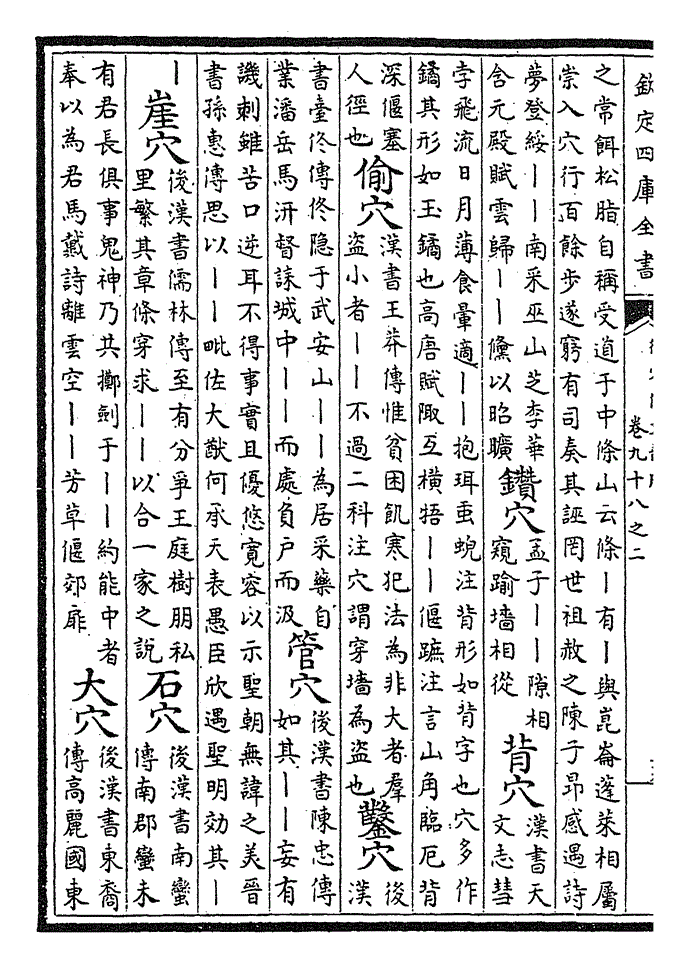 欽定四庫全書
卷九十八之二
之常餌松脂自稱受道于中條山云條丨有丨與崑崙蓬萊相屬
崇入穴行百餘步遂窮有司奏其誣罔世祖赦之陳子昂感遇詩
夢登綏丨丨南采巫山芝李華
含元殿賦雲歸丨丨儻以昭曠
鑽穴
孟子丨丨隙相
窺踰墻相從
背穴
漢書天
文志彗
孛飛流日月薄食暈適丨丨抱珥䖝蜺注背形如背字也穴多作
鐍其形如玉鐍也高唐賦陬互橫牾丨丨偃蹠注言山角臨厄背
深偃蹇
人徑也
偷穴
漢書王莽傳惟貧困飢寒犯法為非大者羣
盜小者丨丨不過二科注穴謂穿墻為盜也
鑿穴
後
漢
書臺佟傳佟隐于武安山丨丨為居采藥自
業潘岳馬汧督誄城中丨丨而處負户而汲
管穴
後漢書陳忠傳
如其丨丨妄有
譏刺雖苦口逆耳不得事實且優悠寛容以示聖朝無諱之美晉
書孫惠傳思以丨丨毗佐大猷何承天表愚臣欣遇聖明効其丨
丨
崖穴
後漢書儒林傳至有分爭王庭樹朋私
里繁其章條穿求丨丨以合一家之說
石穴
後漢書南蠻
傳南郡蠻未
有君長俱事鬼神乃共擲劍于丨丨約能中者
奉以為君馬戴詩離雲空丨丨芳草偃郊扉
大穴
後漢書東裔
傳高麗國東